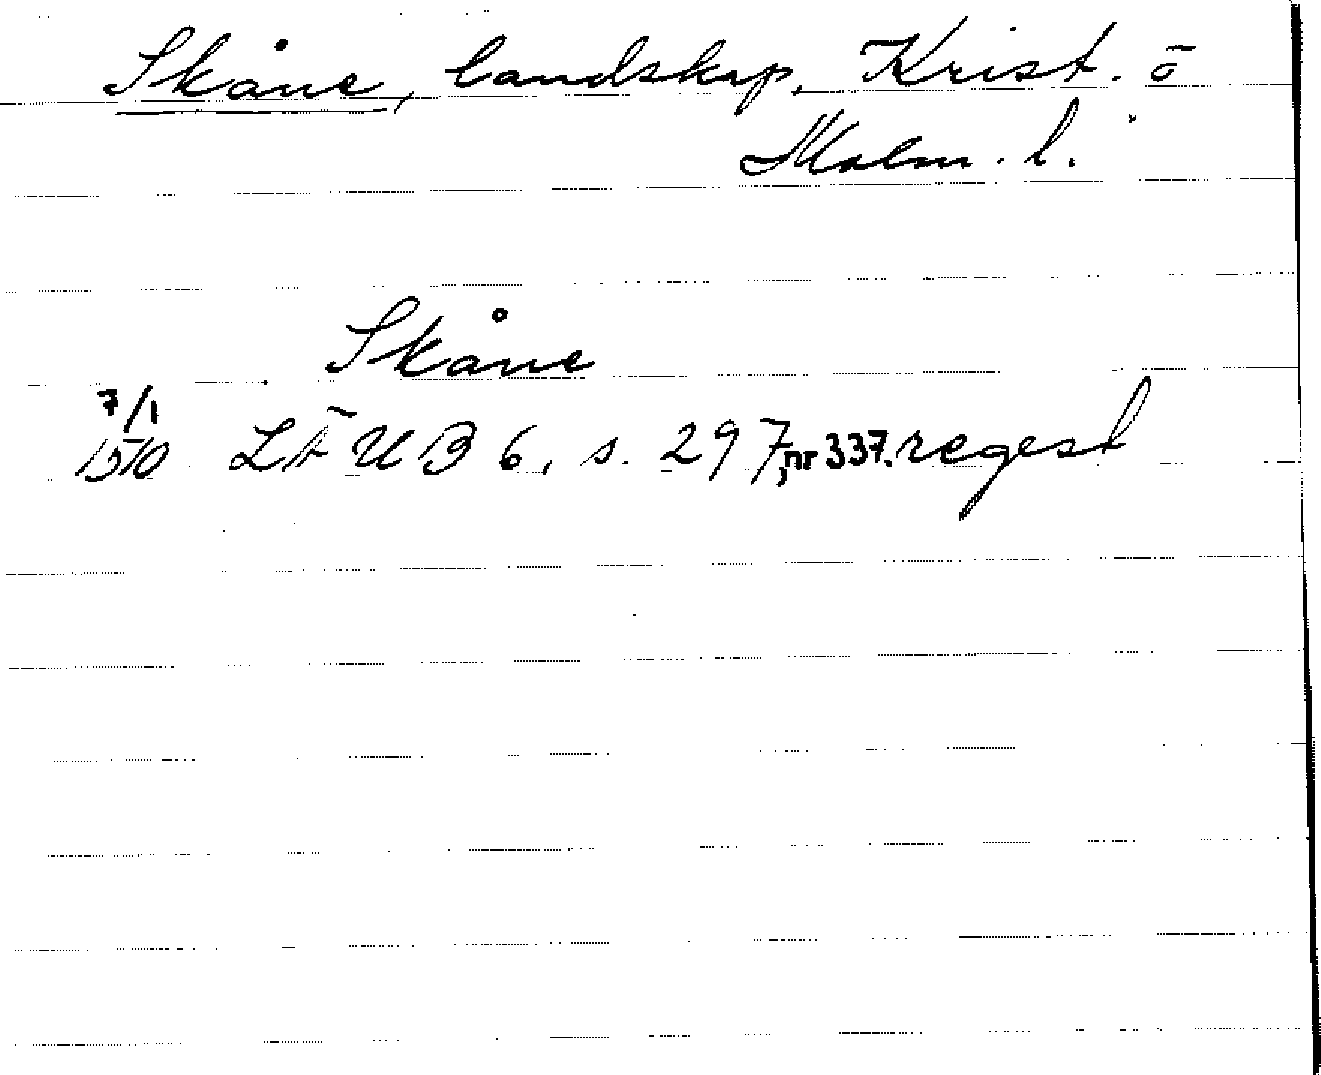 Skåne, landskap, Krist. o
Malm. l.
Skåne
7/1
1510 LÄUB 6, s. 297, nr 337. regest